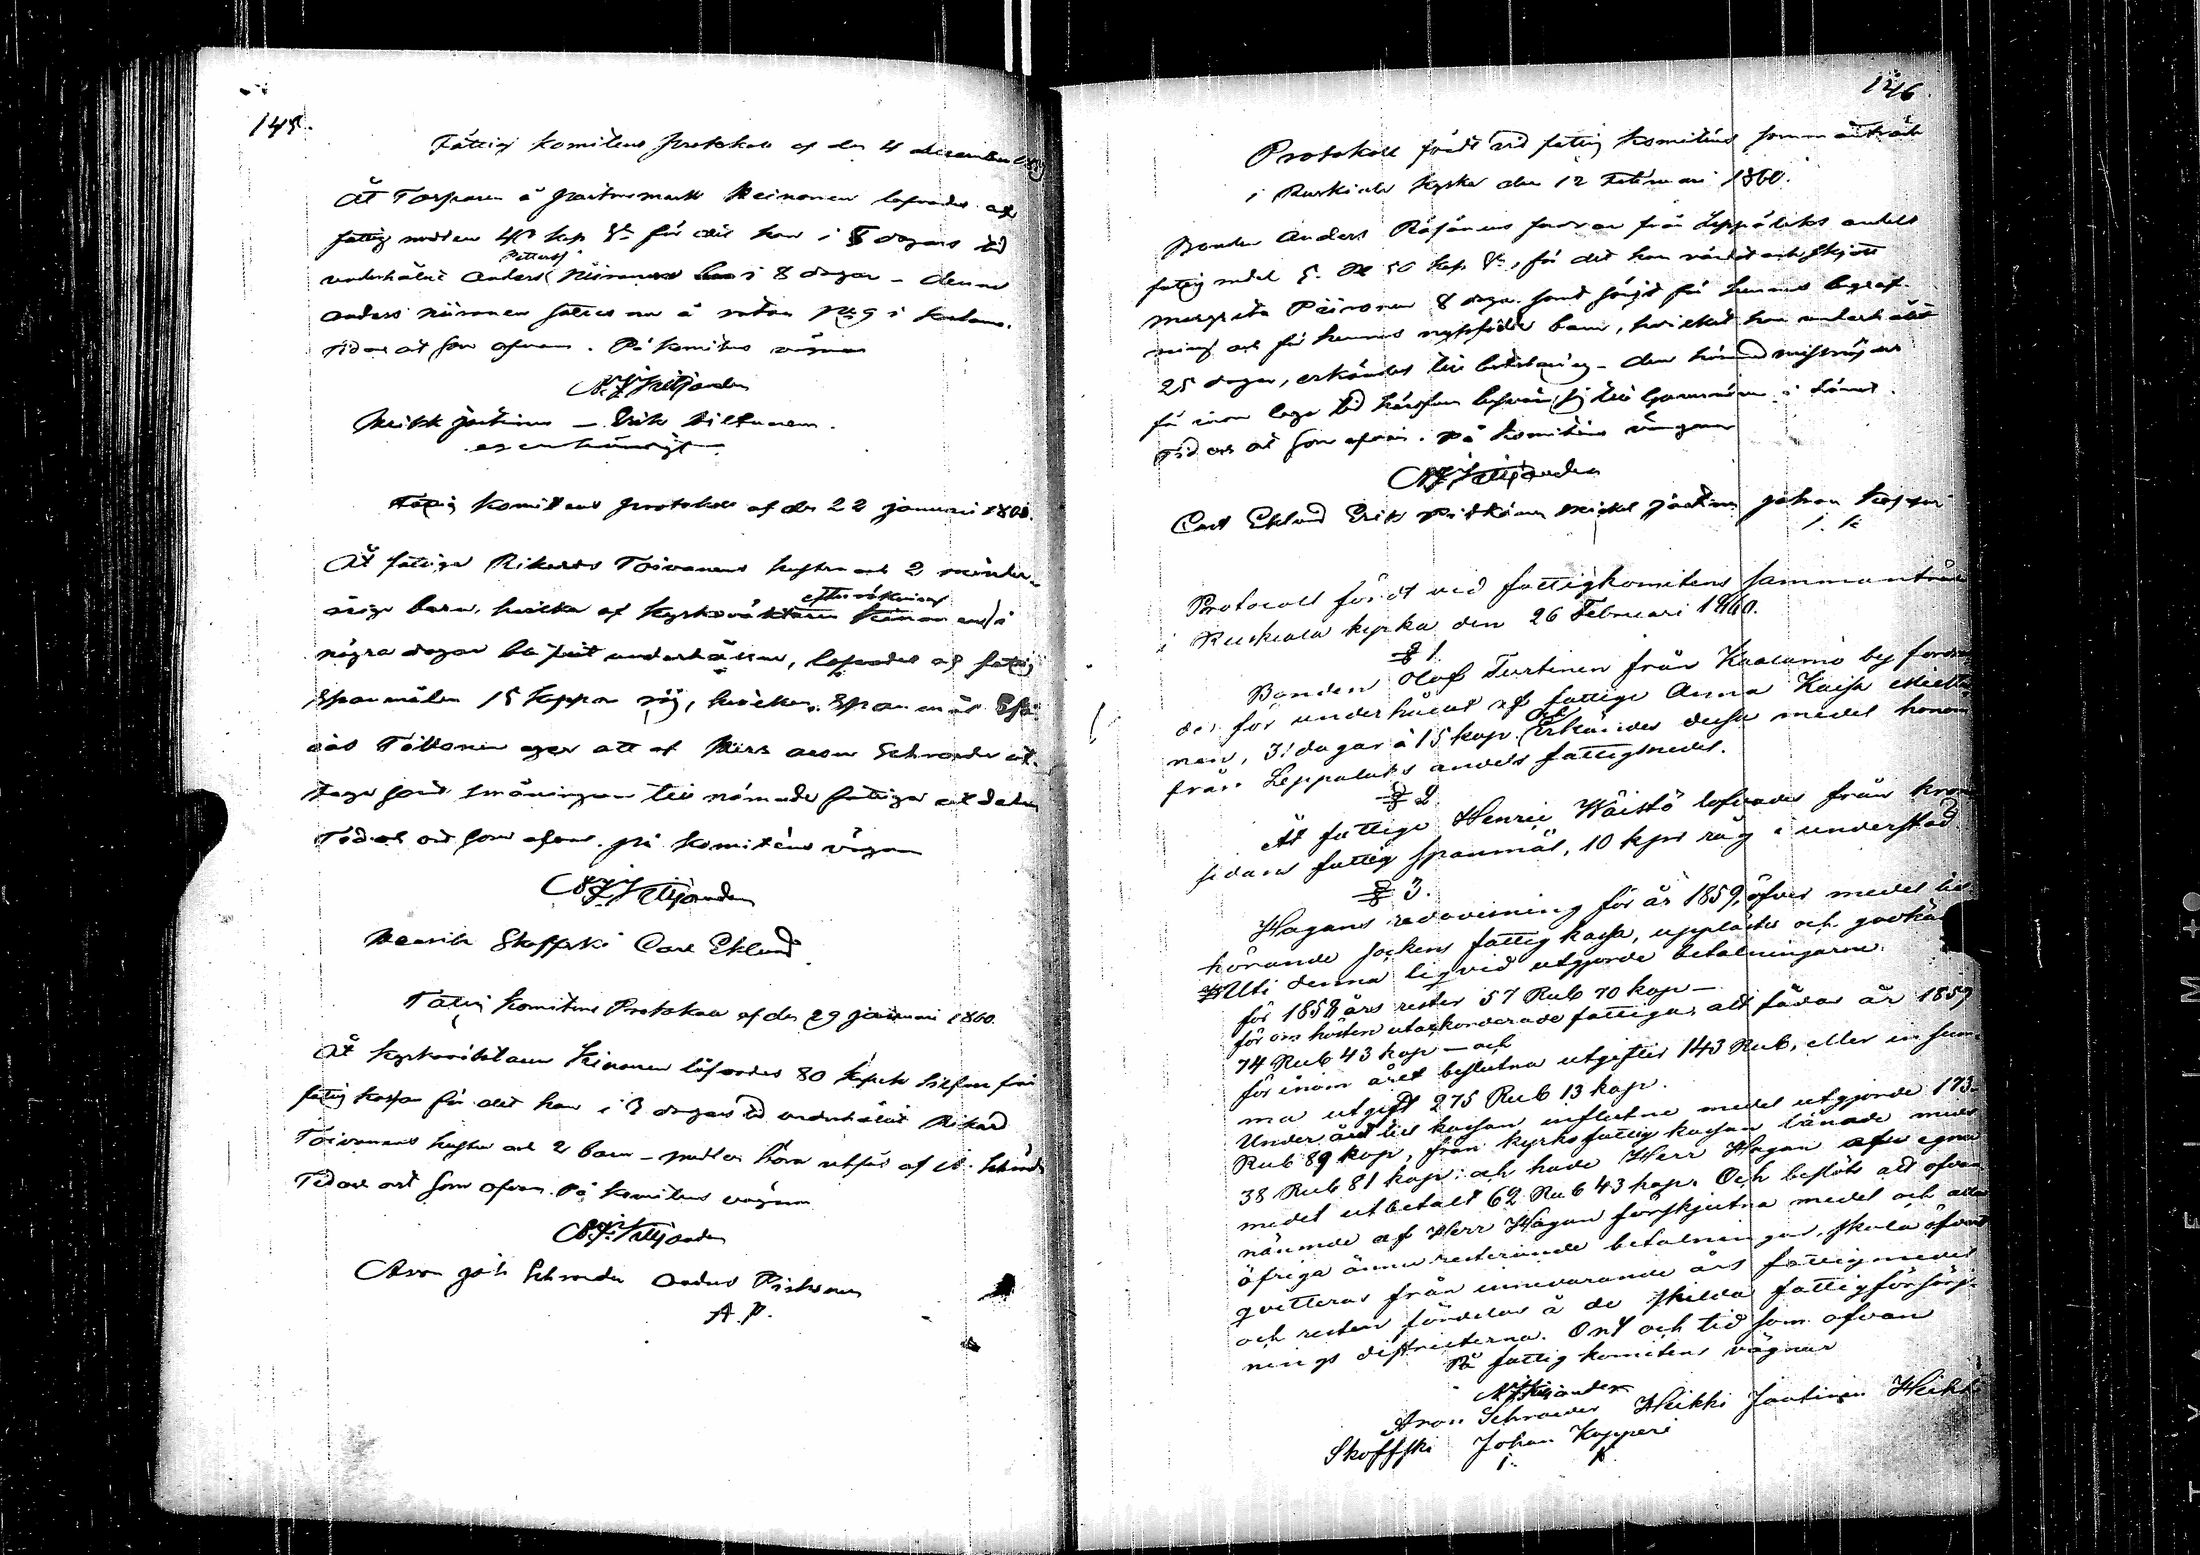 145.
Fattig komitens protokoll af den 4 december
Åt Torparen å prestmark Keinonen lofvades af
fattig medlen 40 kop Sr för det han i 8 dagars tid
Petters
underhållit Anders Niironen i 8 dagar - denne
Anders Niironen sättes nu å roten No 9 i
Tid och ort som ofvan. På komitens vägnar
Erik Hiltunen.
egenhändigt
Fattig komitens protokoll af den 22 januari 1860.
Åt fattige Rikard Toivanens hustru och 2 minder-
efterräkning
årige barn, hvilka af kyrkoväktaren Keinonen i
några dagar blifvit underhållne, lofvades af fattig
Spanmålen 15 kappar råg, hvilken Spanmål
Tolkonen eger att af Herr Aron Schroeder ut-
taga samt småningom till nämnde fattiga utdela
Tid och ort som ofvan. på komiténs vägnar
Henrik Skoffski Carl Eklund
Fattig komitens Protokoll af den 29 januari 1860.
Åt kyrkoväktaren Keinonen lofvades 80 kopek Silfver från
fattig kassan för det han i 3 dagars tid underhållit Rikard
Toivanens hustru och 2 barn - medlen böra utfås af
Tid och ort som ofvan. På komitens vägnar
Aron Joh Schroeder Anders
A. P.
146.
Protokoll fördt vid fattig komitens sammanträde
i Ruskiala kyrka den 12 Februari 1860.
Bonden Anders Räsänens fordran från Leppälaks andels
fattig medel 5. R 50 kop Sr, för det han vårdat och skjött
Margreta Piironen 8 dagar samt sörjt för hennes begraf-
ning och för hennes nyfödde barn, hvilket han underhållit
25 dagar, erkändes till betalning - den härmed missnöjde
får inom laga tid häröfver besvära sig till Guvernören i Länet.
Tid och ort som ofvan. På komiténs vägnar
Carl Eklund Erik Pitkänen Mickel Jäntinen Johan Kopperi
I. K
Protocoll fördt vid fattigkomitens sammanträde
i Ruskiala kyrka den 26 Februari 1860.
§ 1.
Bonden Olof Turtinen från Kaalamo by fordra-
de, för underhållet af fattige Anna Kaisa
nen, 31 dagar à 15 kop. Och Erkändes dessa medel honom
från Leppälaks andels fattigmedel.
§ 2
Åt fattige Henric Wäistö lofvades från
sidans fattig spanmål, 10 kpr råg i understöd.
§ 3.
Hagans redovisning för år 1859, öfver medel till-
hörande sockens fattig kassa, upplästes och godkän-
Uti denna liqvid utgjorde betalningarne
för 1858 års rester 57 Rub 70 kop -
för om hösten utackorderade fattiga, att födas år 1859
74 Rub 43 kop - och
för inom året beslutna utgifter 143 Rub, eller in sum-
ma utgift 275 Rub 13 kop.
Under året till kassan influtna medel utgjorde 173-
Rub 89 kop, från kyrko fattig kassan lånade medel
38 Rub 81 kop: och hade Herr Hagan af egna
medel utbetalt 62 Rub 43 kop. Och beslöts att ofvan
nämnde af Herr Hagan förskjutna medel och alla
öfriga ännu resterande betalningar, skola öfver
qvitteras från innevarande års fattigmedel
och resten fördelas å de skilda fattigförsörj-
nings districterna. Ort och tid som ofvan
På fattig komitens vägnar
Aron Schroeder Heikki Jäntinen Heikki
Skoffski Johan Kopperi
I. K